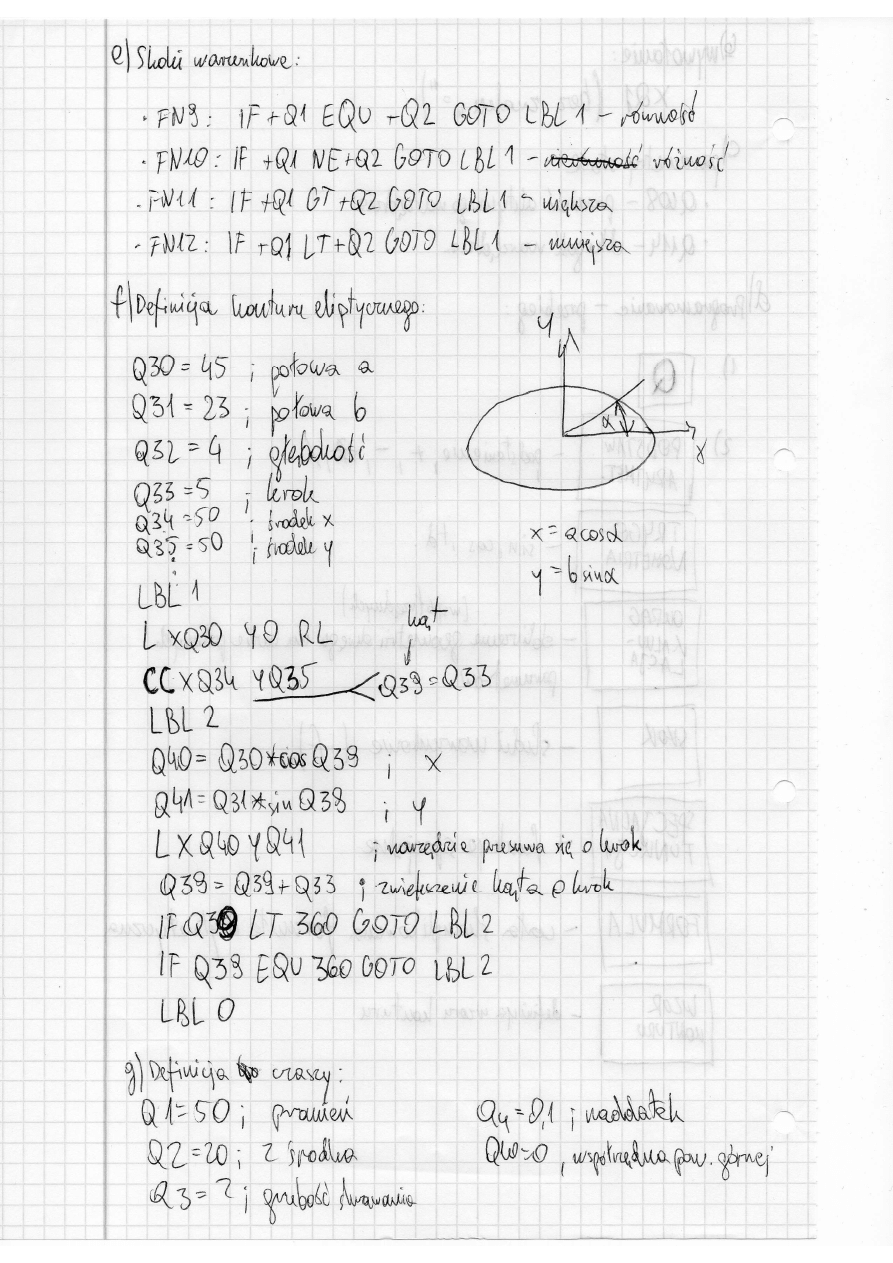 e) Skoki warunkowe:
· FN9: IF +Q1 EQU +Q2 GOTO LBL 1 – równość
· FN10: IF +Q1 NE +Q2 GOTO LBL 1 – różność
· FN11: IF +Q1 GT +Q2 GOTO LBL 1 – większa
· FN12: IF +Q1 LT +Q2 GOTO LBL 1 – mniejsza
f) Definicja konturu eliptycznego:
Q30 = 45 ; połowa a
Q31 = 23 ; połowa b
Q32 = 4 ; głębokość
Q33 = 5 ; krok
Q34 = 50 ; środek x
Q35 = 50 ; środek y
y
α
x
x = a cosα
y = b sinα
LBL 1
L XQ30 Y0 RL
kąt
CC XQ34 YQ35 Q39 = Q33
LBL 2
Q40 = Q30 * cos Q39 ; X
Q41 = Q31 * sin Q39 ; Y
L X Q40 Y Q41 ; narzędzie przesuwa się o krok
Q39 = Q39 + Q33 ; zwiększenie kąta o krok
IF Q39 LT 360 GOTO LBL 2
IF Q39 EQU 360 GOTO LBL 2
LBL 0
g) Definicja czaszy:
Q1 = 50 ; promień
Q2 = 20 ; Z środka
Q3 = 2 ; grubość skrawania
Q4 = 0,1 ; naddatek
Q10 = 0 , współrzędna pow. górnej